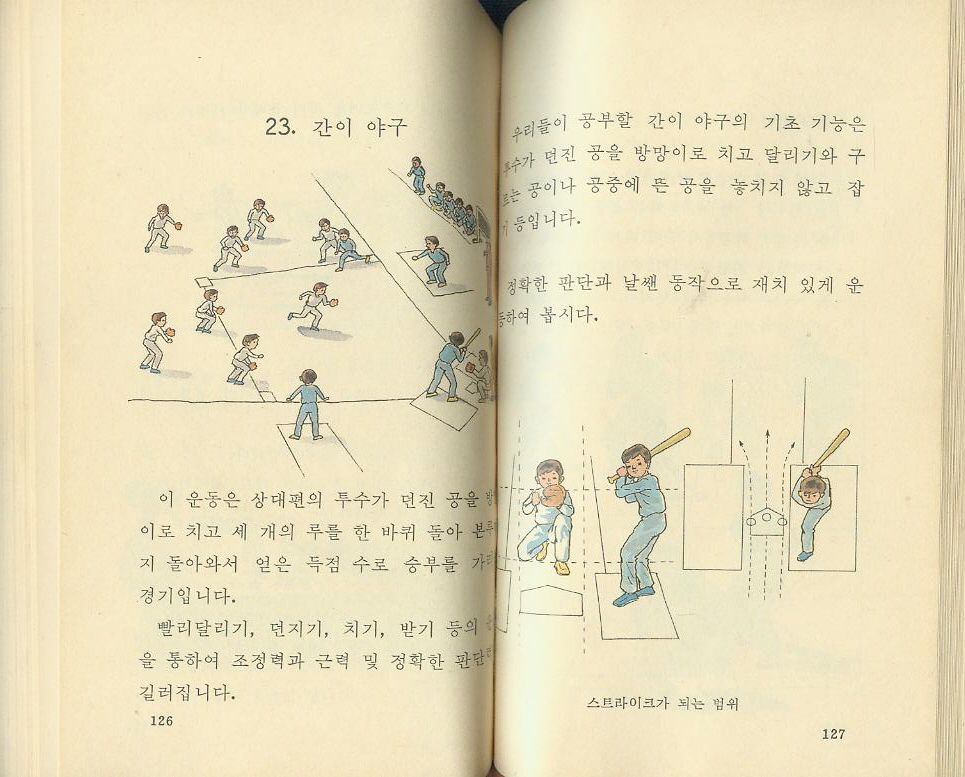 23. 간이 야구
이 운동은 상대편의 투수가 던진 공을
이로 치고 세 개의 루를 한 바퀴 돌아
지 돌아와서 얻은 득점 수로 승부를
경기입니다.
빨리달리기, 던지기, 치기, 받기 등의
을 통하여 조정력과 근력 및 정확한 판단
길러집니다.
126
우리들이 공부할 간이 야구의 기초 기능은
투수가 던진 공을 방망이로 치고 달리기와 구
르는 공이나 공중에 뜬 공을 놓치지 않고 잡
기 등입니다.
정확한 판단과 날쌘 동작으로 재치 있게 운
동하여 봅시다.
스트라이크가 되는 범위
127